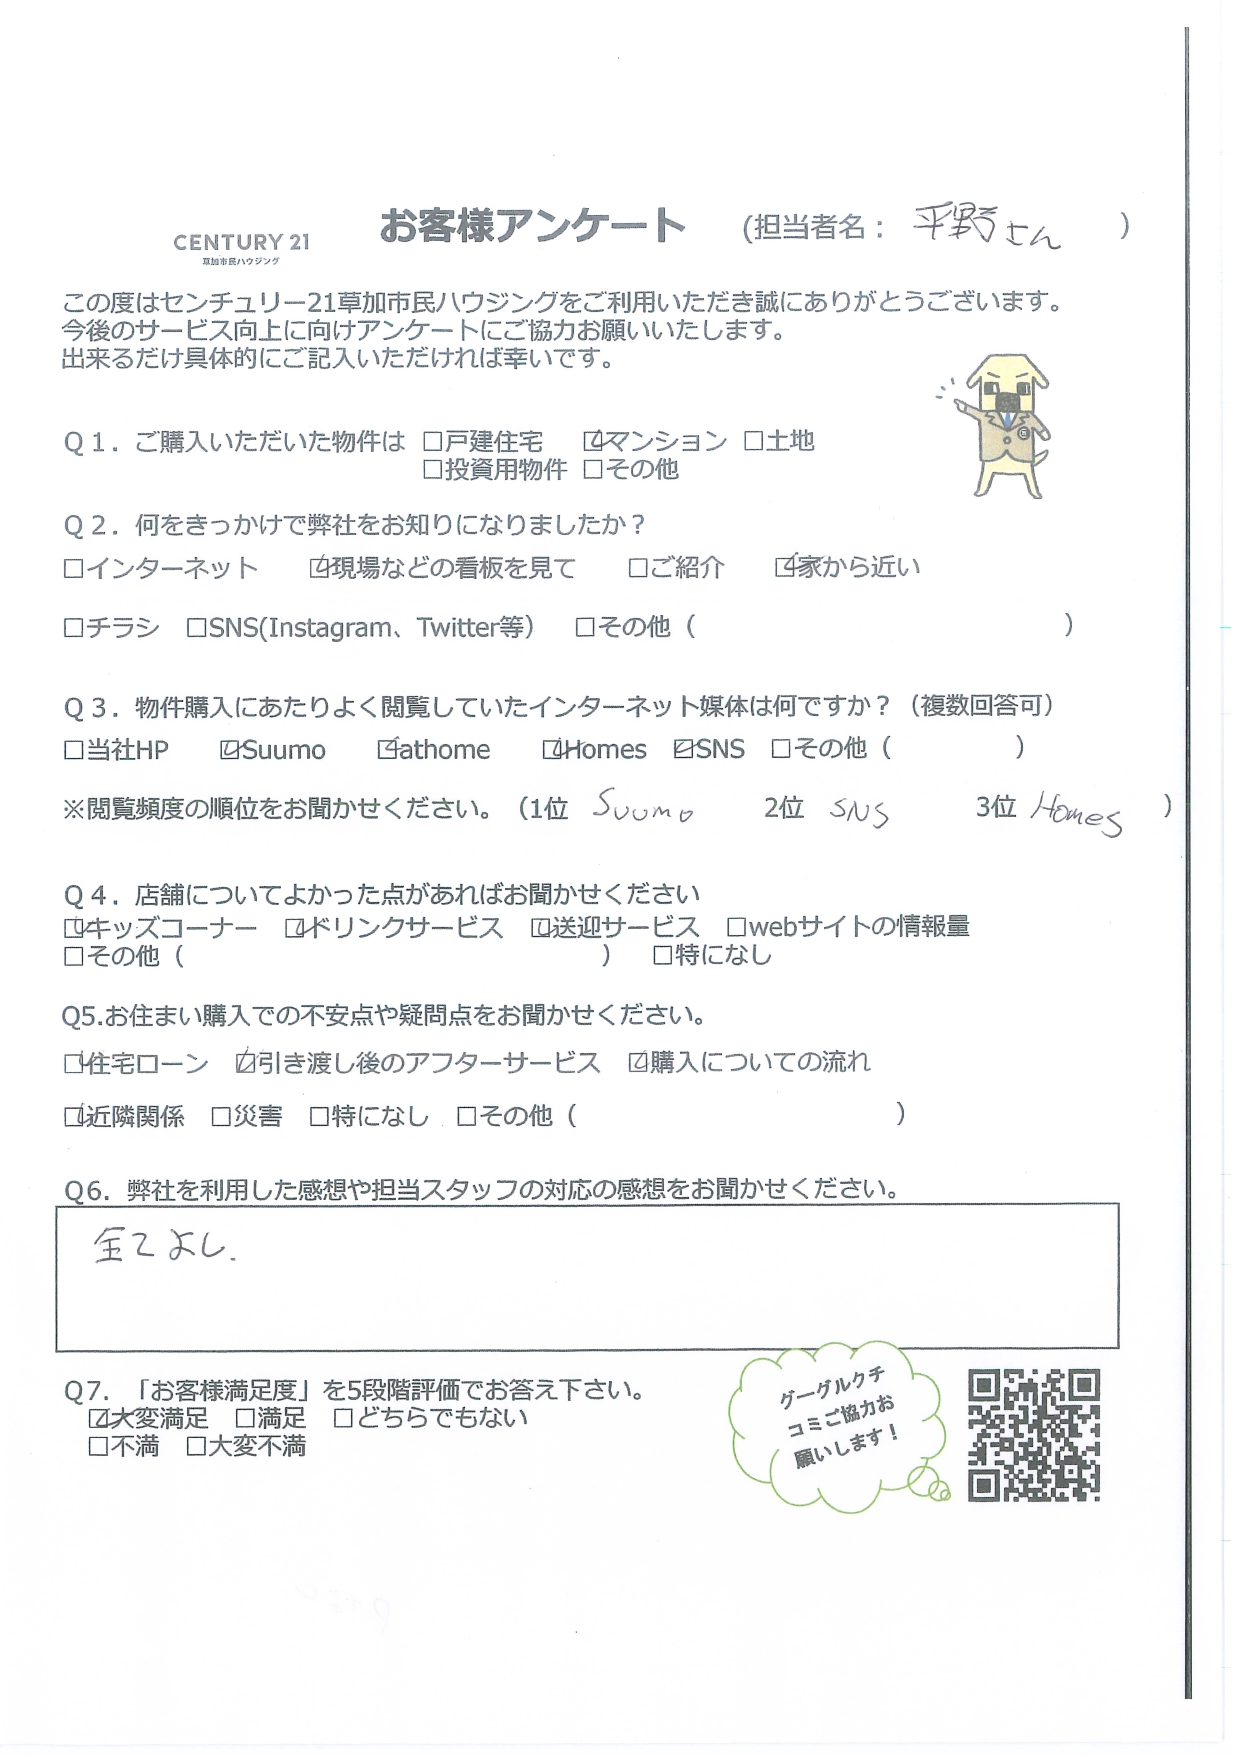 CENTURY 21
草加市民ハウジング
お客様アンケート (担当者名： 平野さん )
この度はセンチュリー21草加市民ハウジングをご利用いただき誠にありがとうございます。
今後のサービス向上に向けアンケートにご協力お願いいたします。
出来るだけ具体的にご記入いただければ幸いです。
Q１．ご購入いただいた物件は ☐戸建住宅 ☑マンション ☐土地
☐投資用物件 ☐その他
Q２．何をきっかけで弊社をお知りになりましたか？
☐インターネット ☑現場などの看板を見て ☐ご紹介 ☑家から近い
☐チラシ ☐SNS(Instagram、Twitter等） ☐その他（ ）
Q３．物件購入にあたりよく閲覧していたインターネット媒体は何ですか？（複数回答可）
☐当社HP ☑Suumo ☑athome ☑Homes ☑SNS ☐その他（ ）
※閲覧頻度の順位をお聞かせください。（1位 Suumo 2位 SNS 3位 Homes ）
Q４．店舗についてよかった点があればお聞かせください
☑キッズコーナー ☑ドリンクサービス ☑送迎サービス ☐webサイトの情報量
☐その他（ ） ☐特になし
Q5.お住まい購入での不安点や疑問点をお聞かせください。
☑住宅ローン ☑引き渡し後のアフターサービス ☑購入についての流れ
☑近隣関係 ☐災害 ☐特になし ☐その他（ ）
Q6．弊社を利用した感想や担当スタッフの対応の感想をお聞かせください。
全てよし.
Q7．「お客様満足度」を5段階評価でお答え下さい。
☑大変満足 ☐満足 ☐どちらでもない
☐不満 ☐大変不満
グーグルクチ
コミご協力お
願いします！